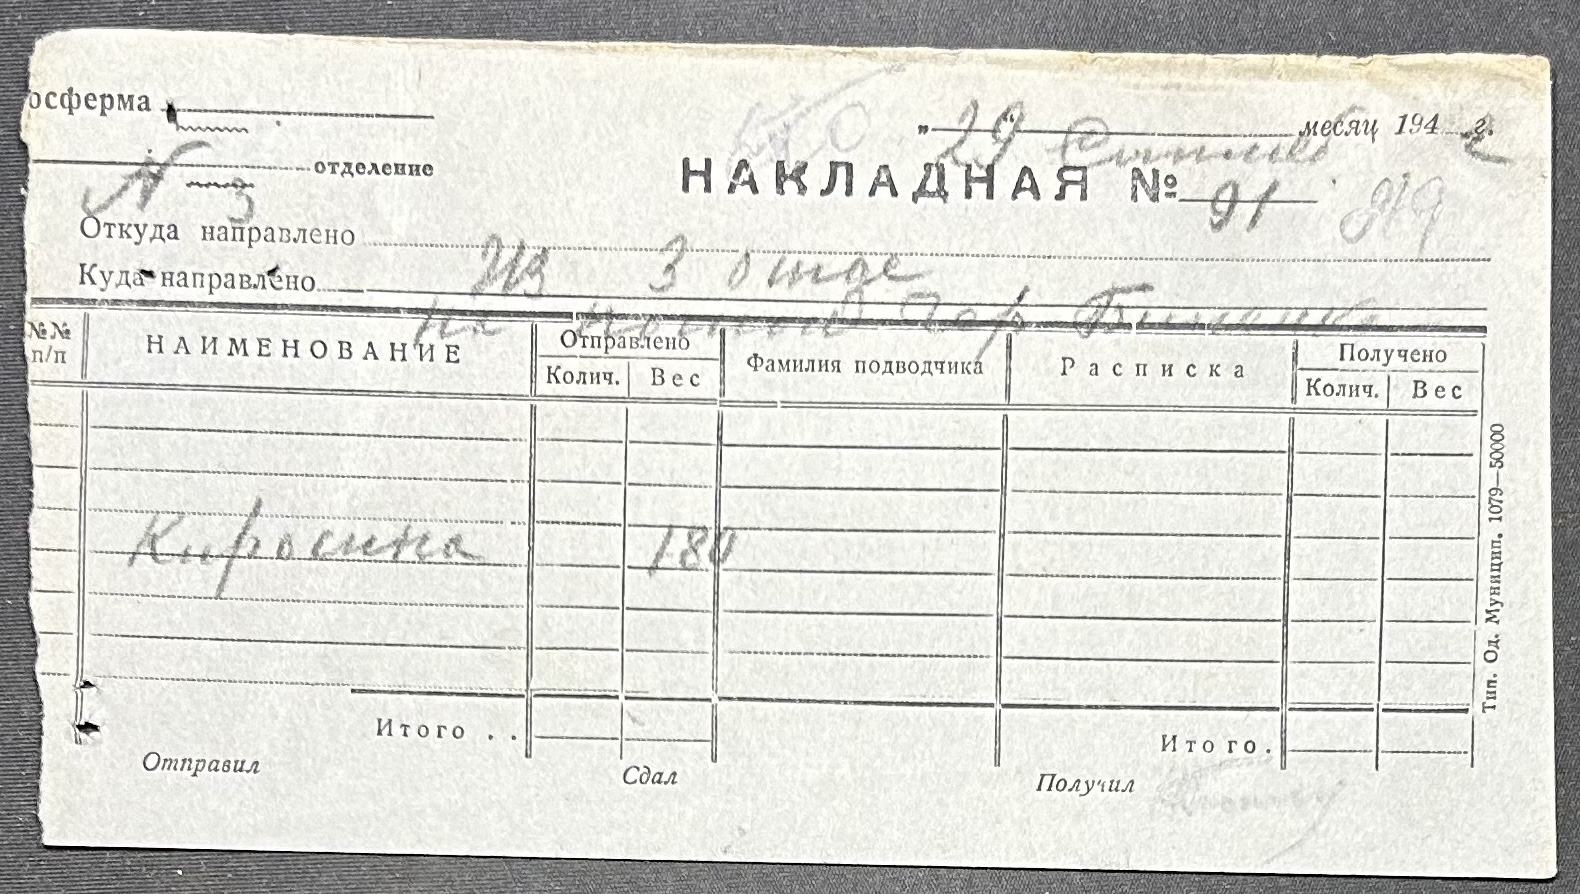 осферма
„ 29 " месяц 194 2 г.
№ 3 отделение
НАКЛАДНАЯ № 91 919
Откуда направлено Из 3 отде
Куда направлено на
№№ п/п НАИМЕНОВАНИЕ Отправлено Колич. Вес Фамилия подводчика Расписка Получено Колич. Вес
Киросина 180
Итого . . Итого.
Отправил Сдал Получил
Тип. Од. Муницип. 1079—50000